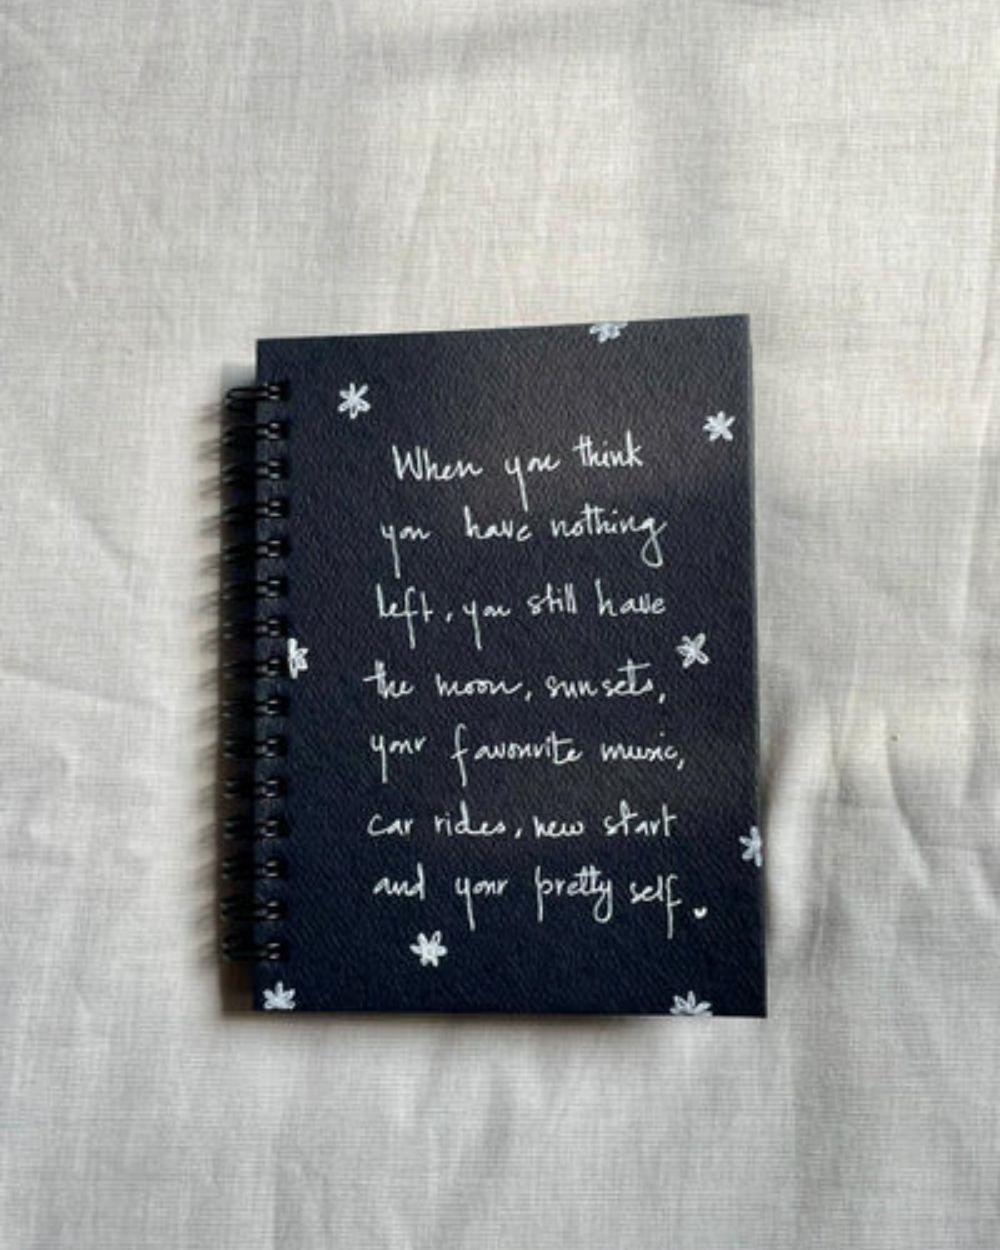 When you think
you have nothing
left, you still have
the moon, sunsets,
your favourite music,
car rides, new start
and your pretty self.